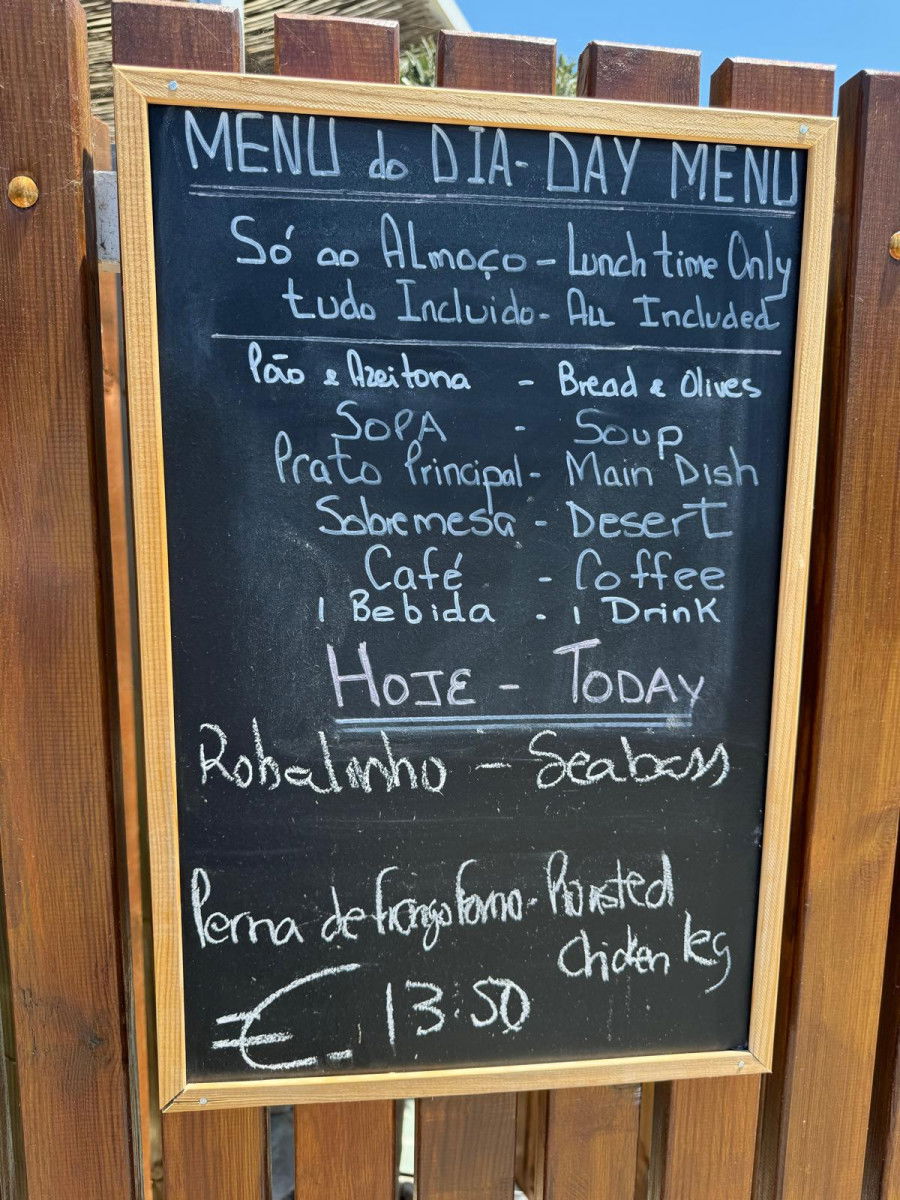 MENU do DIA - DAY MENU
Só ao Almoço - Lunch time Only
tudo Incluido - All Included
Pão e Azeitona - Bread e Olives
Sopa - Soup
Prato Principal - Main Dish
Sobremesa - Desert
Café - Coffee
1 Bebida - 1 Drink
HOJE - TODAY
Robalinho - Seabass
Perna de frango forno - Roasted
chicken leg
€ 13.50